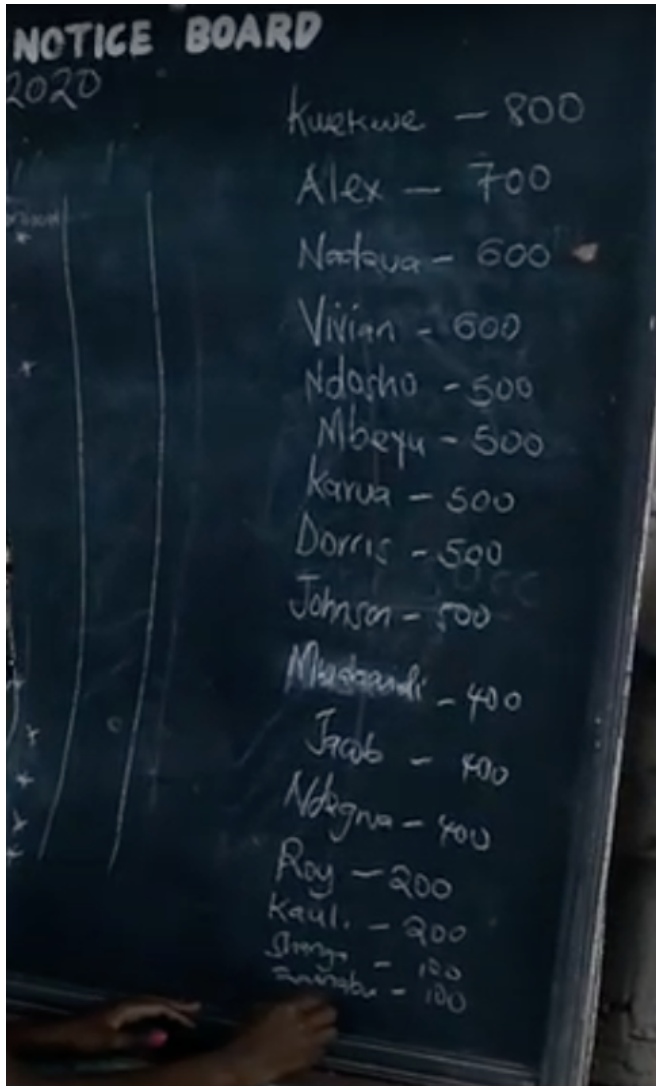 NOTICE BOARD
2020
Kwekwe – 800
Alex – 700
Nadzua – 600
Vivian – 600
Ndosho – 500
Mbeyu – 500
Karua – 500
Dorris – 500
Johnson – 500
– 400
Jacob – 400
Ndegwa – 400
Roy – 200
Kaul. – 200
– 100
– 100